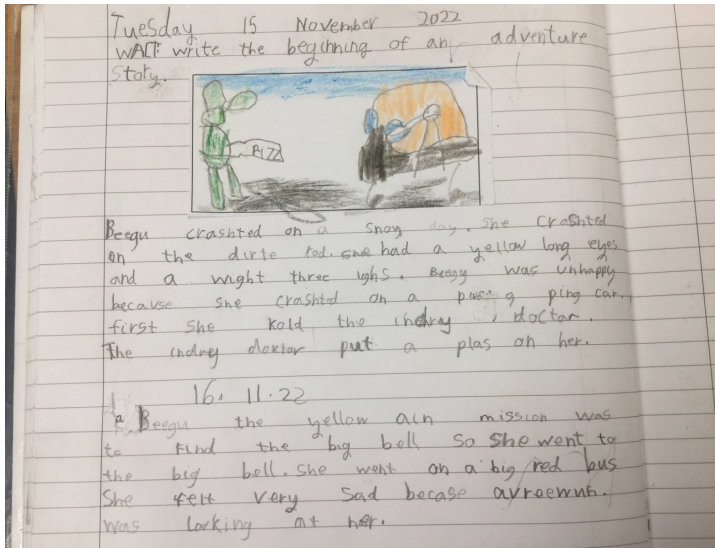 Tuesday 15 November 2022
WALT: write the beginning of an adventure
story.
PIZZ
Beegu crashted on a snoy day. She crashted
on the dirte rod. she had a yellow long eyes
and a wight three ighs. Beegu was unhappy
because she crashted on a ping car.
first she kold the doctor.
The doktor put a plas on her.
16. 11.22
a Beegu the yellow ain mission was
to find the big bell so she went to
the big bell. She went on a big red bus
She felt very sad becase avroewun.
was locking at her.